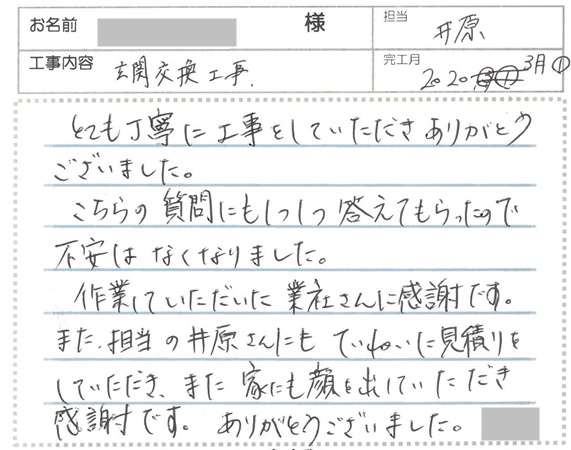 お名前 様 担当 井原
工事内容 玄関交換工事. 完工月 2020 3月
とても丁寧に工事をしていただきありがとう
ございました。
こちらの質問にも1つ1つ答えてもらったので
不安はなくなりました。
作業していただいた業社さんに感謝です。
また、担当の井原さんにもていねいに見積りを
していただき、また家にも顔を出していただき
感謝です。ありがとうございました。